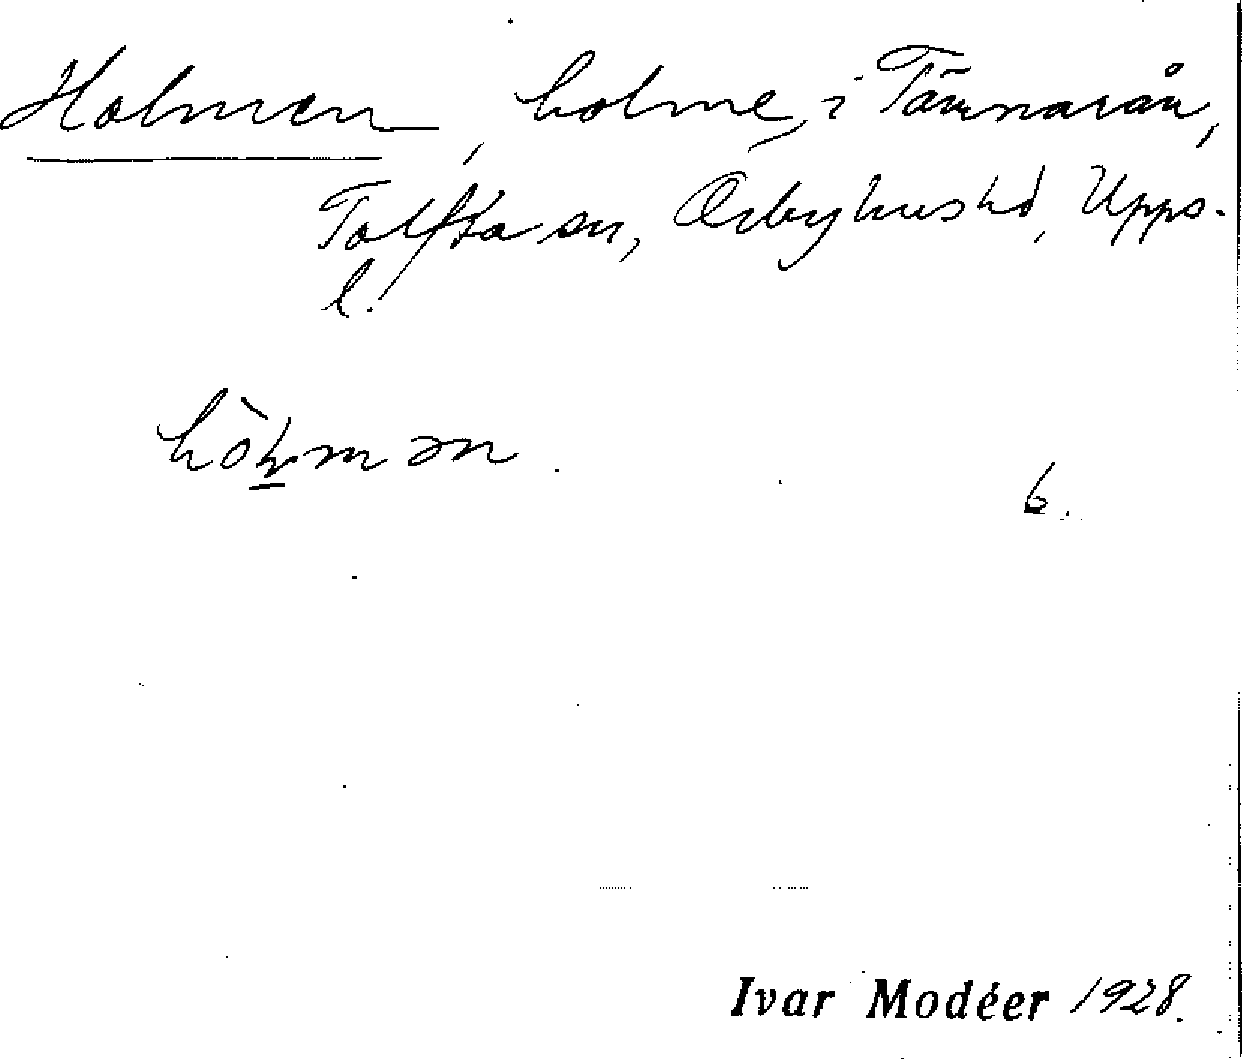 Holmen, holme, i Tämnarån,
Tolfta sn, Örbyhus hd, Upps.
l.
hòḷmən.
6.
Ivar Modéer 1928.